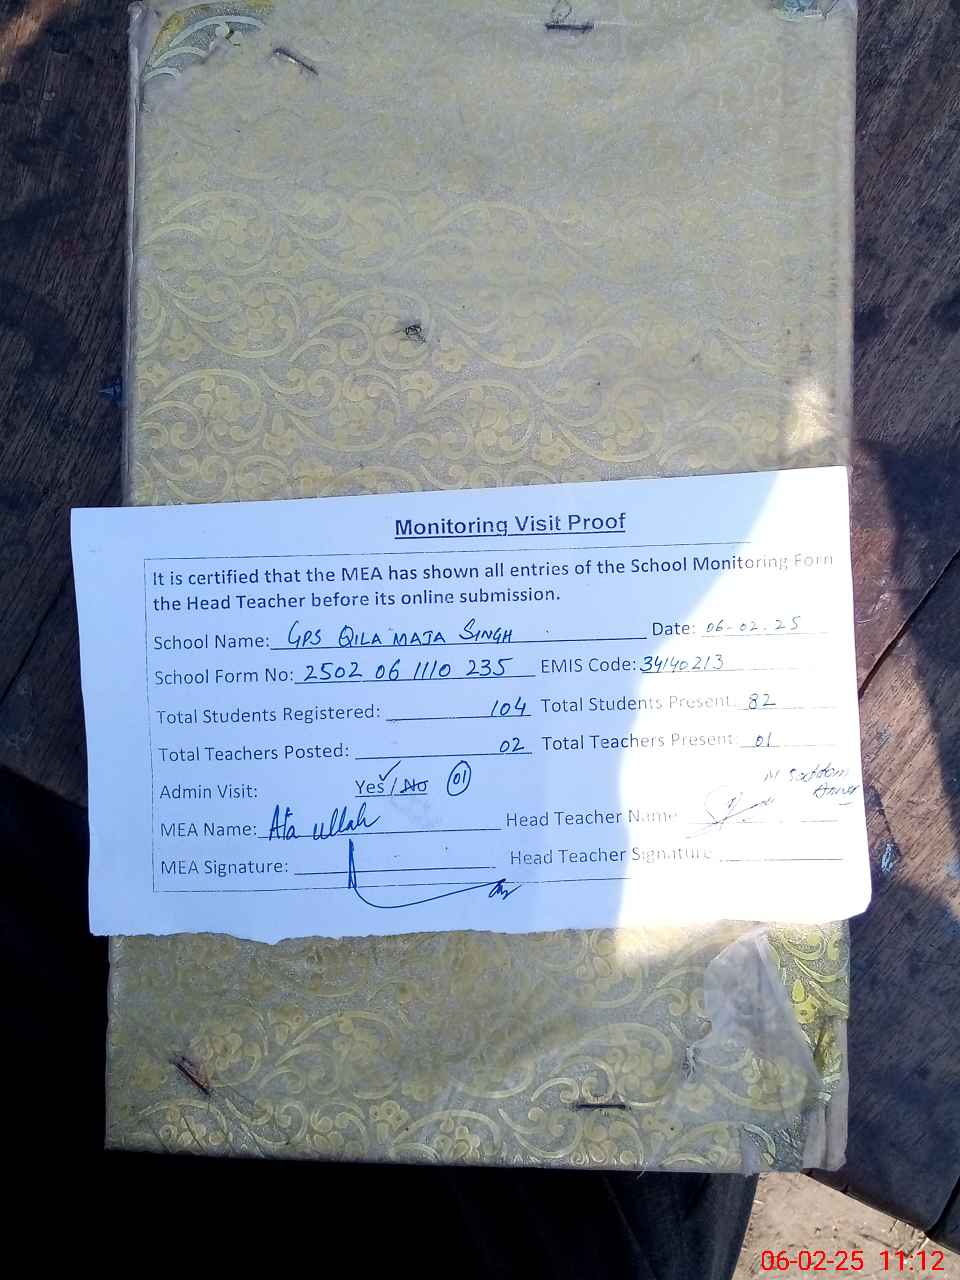 Monitoring Visit Proof
It is certified that the MEA has shown all entries of the School Monitoring Form
the Head Teacher before its online submission.
School Name: GPS QILA MAJA SINGH Date: 06-02-25
School Form No: 2502 06 1110 235 EMIS Code: 34140213
Total Students Registered: 104 Total Students Present: 82
Total Teachers Posted: 02 Total Teachers Present: 01
Admin Visit: Yes/No 01
MEA Name: Ata ullah Head Teacher Name
MEA Signature: Head Teacher Signature
06-02-25 11:12